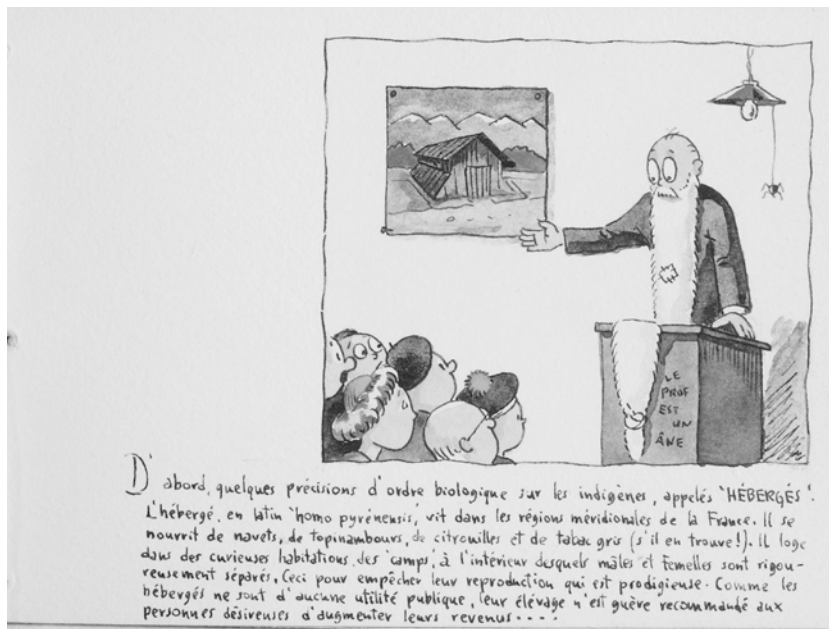 LE
PROF
EST
UN
ÂNE
D'abord, quelques précisions d'ordre biologique sur les indigènes, appelés "HÉBERGÉS".
L'hébergé, en latin "homo pyrénensis", vit dans les régions méridionales de la France. Il se
nourrit de navets, de topinambours, de citrouilles et de tabac gris (s'il en trouve!). Il loge
dans des curieuses habitations, des "camps", à l'intérieur desquels mâles et femelles sont rigou-
reusement séparés, Ceci pour empêcher leur reproduction qui est prodigieuse. Comme les
hébergés ne sont d'aucune utilité publique, leur élévage n'est guère recommandé aux
personnes désireuses d'augmenter leurs revenus....